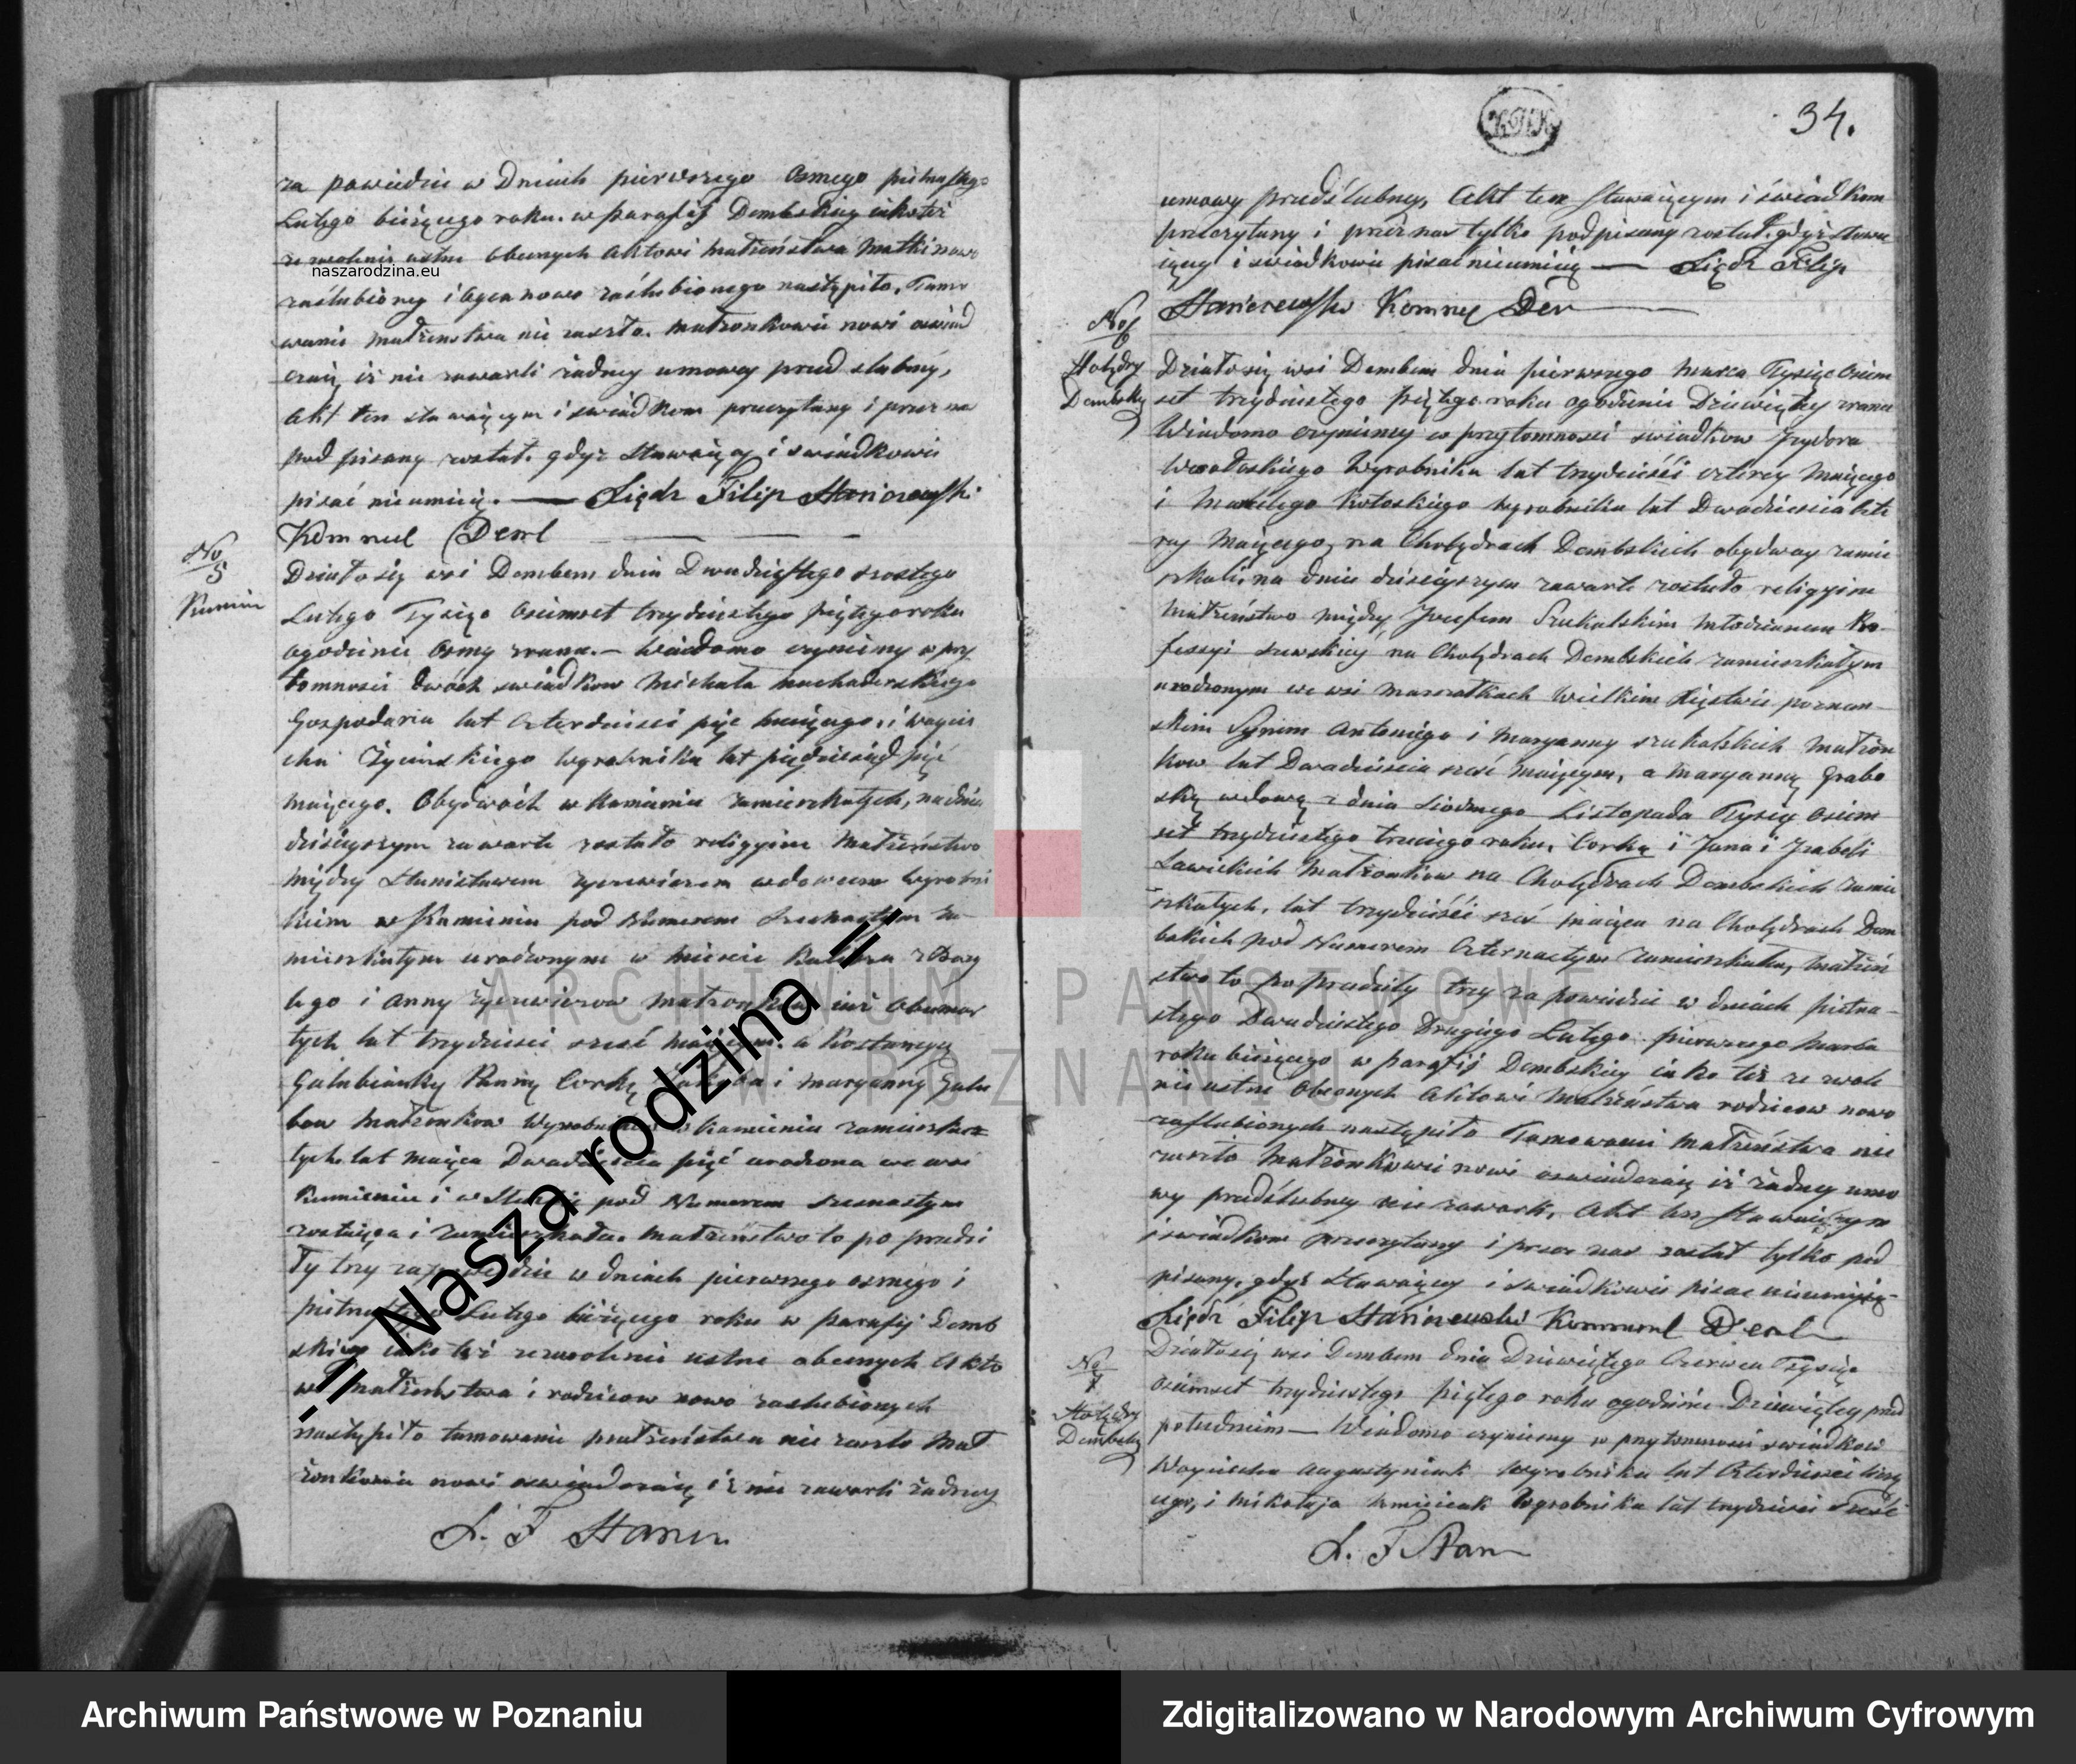 za powiedzi w Dniach pierwszego Osmego pietnastego
Lutego bieżącego roku. w parafij Dembskiey iakoteż
zezwolenie ustne obecnych Aktowi małżeństwa Matki nowo
naszarodzina.eu
zaślubioney i Oyca nowo zaślubionego nastąpiło. Tamo
wanie małżeństwa nie zaszło. małżonkowie nowi oswiad
czaią iż nie zawarli żadney umowy przed slubney,
Akt ten stawaiącym i swiadkom przeczytany i przez nas
pod pisany został. gdyż stawaiący i swiadkowie
pisać nieumieią. — Xiądz Filip Staniszewski
No 5
Kamień
Działo się wsi Dembem dnia Dwudziestego szostego
Lutego Tysiąc Osiemset trzydziestego piątego roku
ogodzinie Osmy zrana. — Wiadomo czyniemy w przy
tomnosci dwoch swiadkow Michała
Gospodarza lat czterdziesci pięć maiącego, i Woycie
cha Życinskiego wyrobnika lat pięćdziesiąt pięć
maiącego. Obydwoch w Kamieniu zamieszkałych, na dniu
dzisieyszym zawarte zostało religyine Małżeństwo
między Stanisławem wdowcem wyrobni
kiem w Kamieniu pod Numerem za-
mieszkałym urodzonym w miescie
i Anny małżonkow iuż Obumar
łych lat trzydziesci sześć maiącym. a Konstancyą
Gałubianką Panną Corką Jakoba i Maryanny Gału
bow małżonkow wyrobnikow w Kamieniu zamieszka
łych lat maiąca Dwadziescia pięć urodzona we wsi
Kamieniu i w pod Numerem szesnastym
zostaiąca i zamieszkała. małżeństwo to po przedzi
ły trzy zapowiedzie w dniach pierwszego osmego i
pietnastego Lutego bieżącego roku w parafij Demb
skiey iako też zezwolenie ustne obecnych Akto
wi małżeństwa i rodzicow nowo zaslubionych
nastąpiło tamowanie małżeństwa nie zaszło Mał
żonkowie nowi oswiadczaią iż nie zawarli żadney
X. F Stanisz
34.
umowy przedślubney, Akt ten stawaiącym i świadkom
przeczytany i przez nas tylko podpisany został. gdyż stawa
iący i świadkowie pisac nieumieią — Xiądz Filip
Staniszewski
No 6
Holędry
Dembskie
Działo się wsi Dembem dnia pierwszego Marca Tysiąc Osiem
set trzydziestego piątego roku ogodzinie Dziewiątey zrana
Wiadomo czyniemy w przytomnosci swiadkow Jzydora
wyrobnika lat trzydzieści cztery maiącego
i Kołoskiego wyrobnika lat Dwadziescia
maiącego, na Cholędrach Dembskich obydway zamie
szkali, na dniu dzisieyszym zawarte zostało religyine
Małżeństwo między Jozefem Szukalskim młodzianem Pro
fessyi szewskiey, na Cholędrach Dembskich zamieszkałym
urodzonym we wsi Marszałkach Wielkim Xięstwie poznan
skim Synem Antoniego i Maryanny szukalskich Małżon
kow lat Dwadziescia sześć maiącym, a Maryanną Grabo
ską wdową z dnia siodmego Listopada Tysiąc Osiem
set trzydziestego trzeciego roku, Corką i Jana i Jzabeli
Sawickich Małżonkow na Cholędrach Dembskich zamie
szkałych, lat trzydzieści sześć maiąca na Cholędrach Dem
bskich pod Numerem Czternastym zamieszkałą, małżeń
stwo to po przedziły trzy za powiedzie w dniach pietna-
stego Dwudziestego Drugiego Lutego pierwszego Marca
roku bieżącego w parafij Dembskiey iako też zezwole
nie ustne Obecnych Aktowi Małżeństwa rodzicow nowo
zaślubionych nastąpiło Tamowanie Małżeństwa nie
zaszło Małżonkowie nowi oswiadczaią iż żadney umo
wy przedślubney nie zawarli, Akt ten stawaiącym
i swiadkom przeczytany i przez nas został tylko pod
pisany, gdyż stawaiący i swiadkowie pisac nieumieią.
Xiądz Filip Staniszewski
No 7
Holędry
Dembskie
Działo się wsi Dembem dnia Dziewiątego Czerwca Tysiąc
osiemset trzydziestego piątego roku ogodzinie Dziewiątey przed
południem — Wiadomo czyniemy w przytomnosci swiadkow
Woyciecha Augustyniak Wyrobnika lat Czterdziesci
i Mikołaja Wyrobnika lat trzydzieści sześć
X. F Stan
ARCHIWUM PAŃSTWOWE
W POZNANIU
-= Nasza rodzina =-
Archiwum Państwowe w Poznaniu
Zdigitalizowano w Narodowym Archiwum Cyfrowym